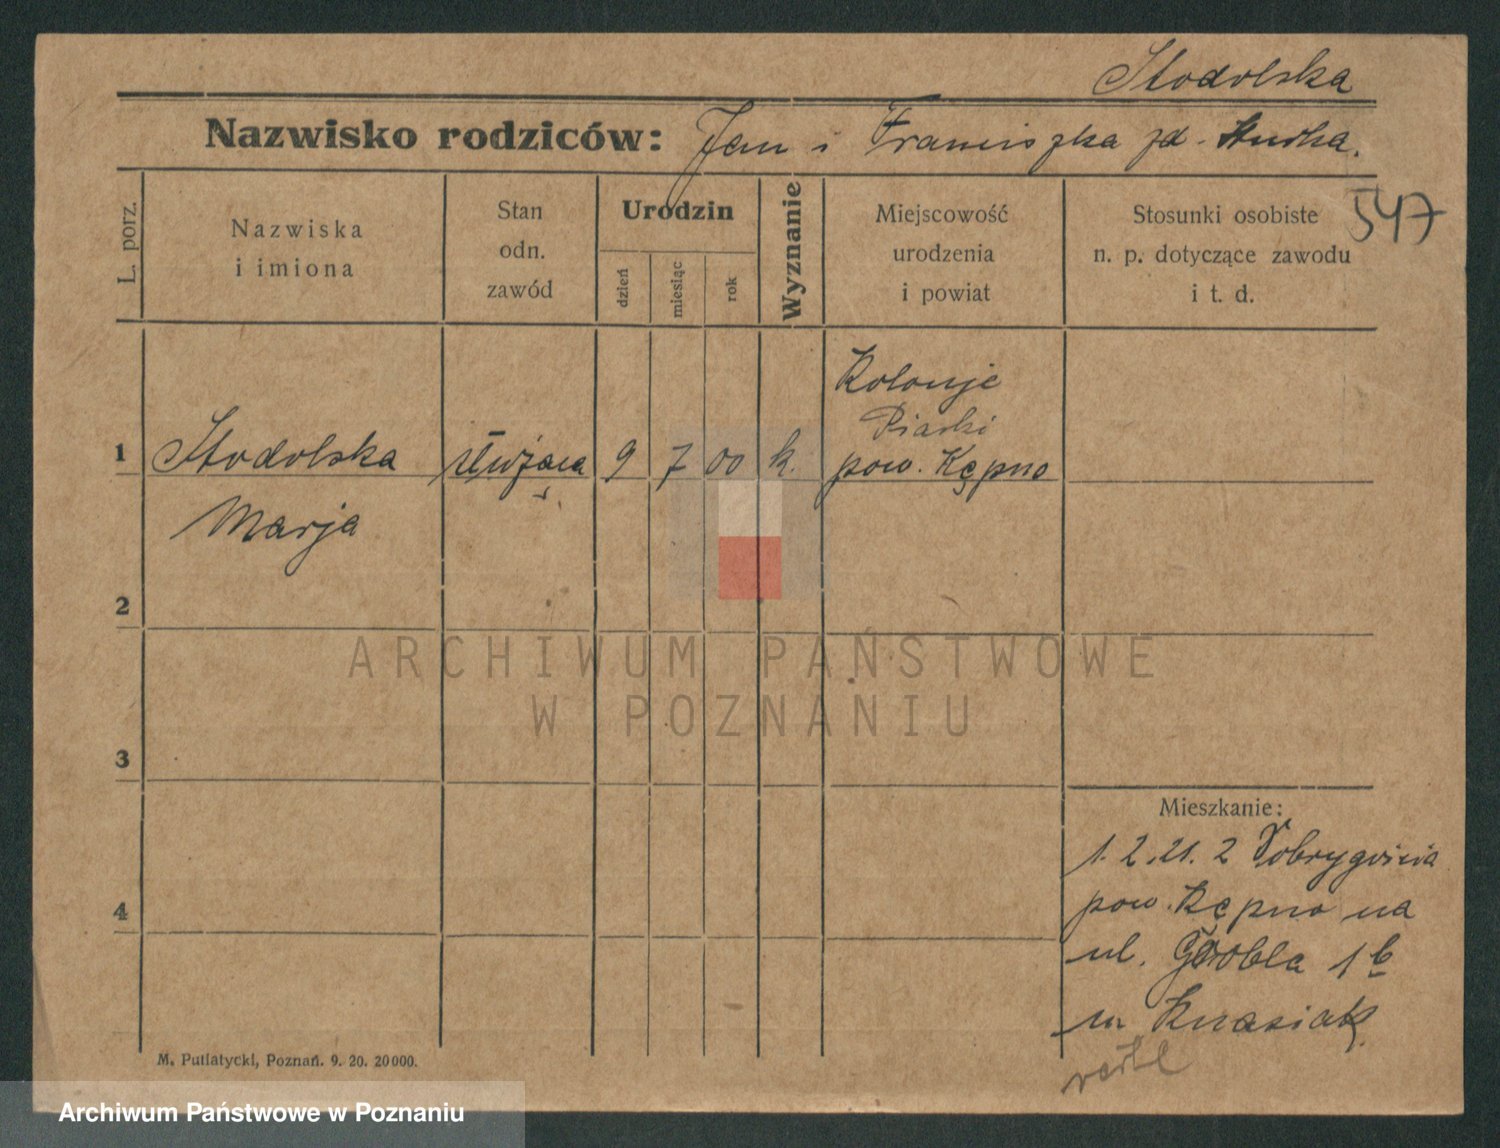 Stodolska
Nazwisko rodziców: Jan i Franciszka zd.
547
L. porz.
Nazwiska
i imiona
Stan
odn.
zawód
Urodzin
dzień
miesiąc
rok
Wyznanie
Miejscowość
urodzenia
i powiat
Stosunki osobiste
n. p. dotyczące zawodu
i t. d.
Kolonje
Piaski
1 Stodolska służąca 9 7 00 k. pow. Kępno
Marja
2
ARCHIWUM PAŃSTWOWE
W POZNANIU
3
Mieszkanie:
1. 2. 21. z Dobrygościa
4
pow. Kępno na
ul. Grobla 1b
u Knasiak
M. Putiatycki, Poznań. 9. 20. 20000.
Archiwum Państwowe w Poznaniu